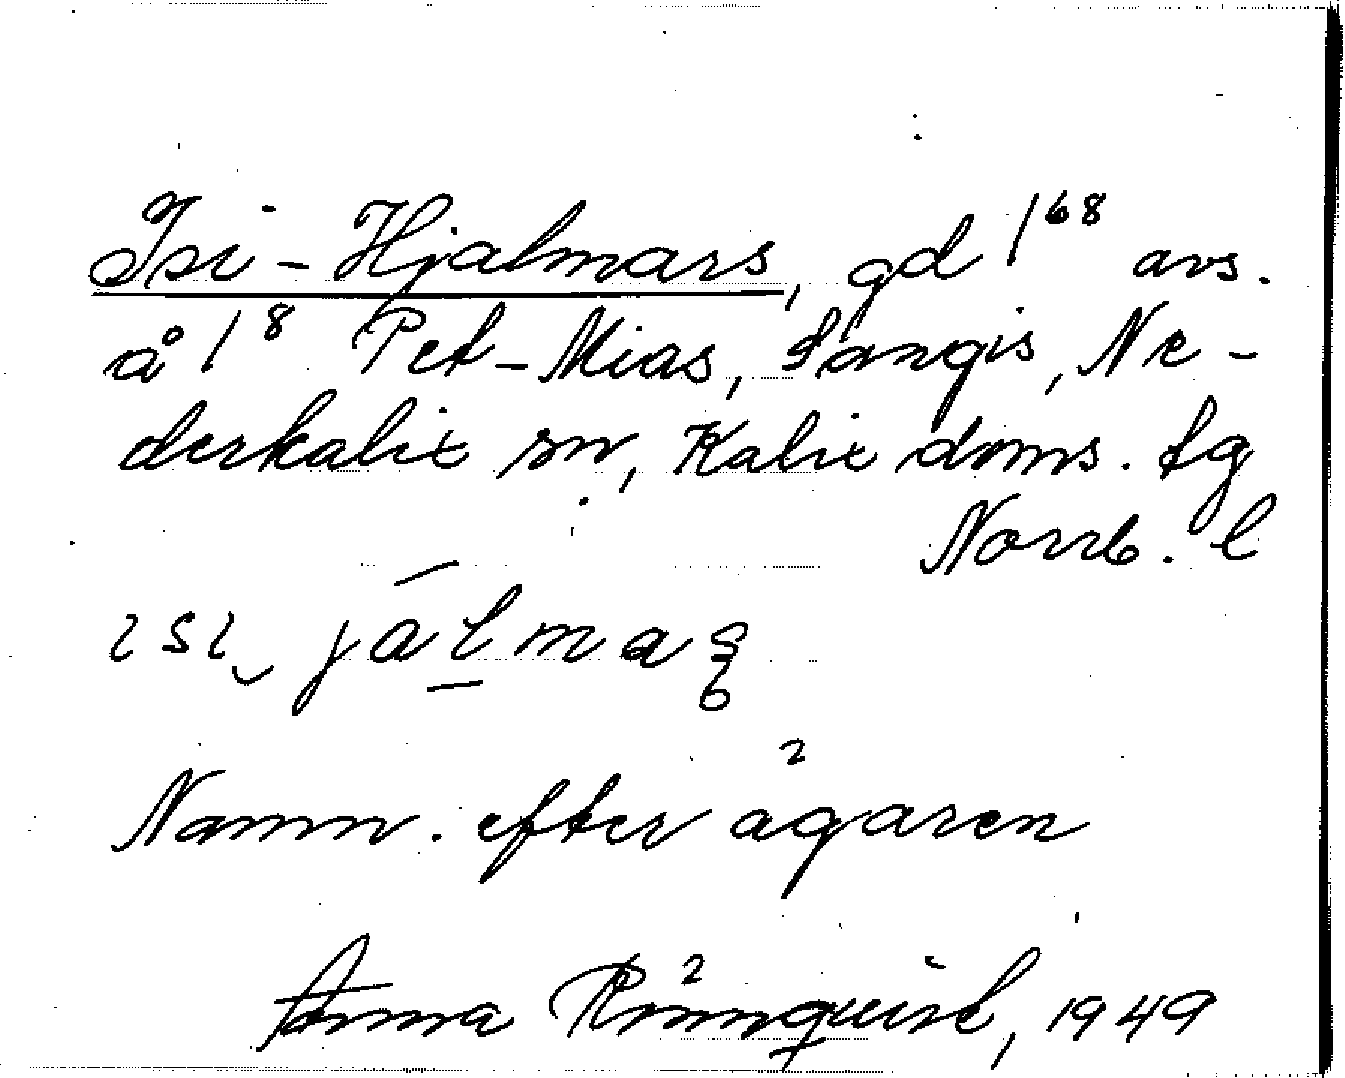 Isi-Hjalmars, gd 1⁶⁸ avs.
å 1⁸ Pet-Mias, Sangis, Ne-
derkalix sn, Kalix doms. tg
Norrb. l
Namn. efter ägaren
Anna Rönnquist, 1949